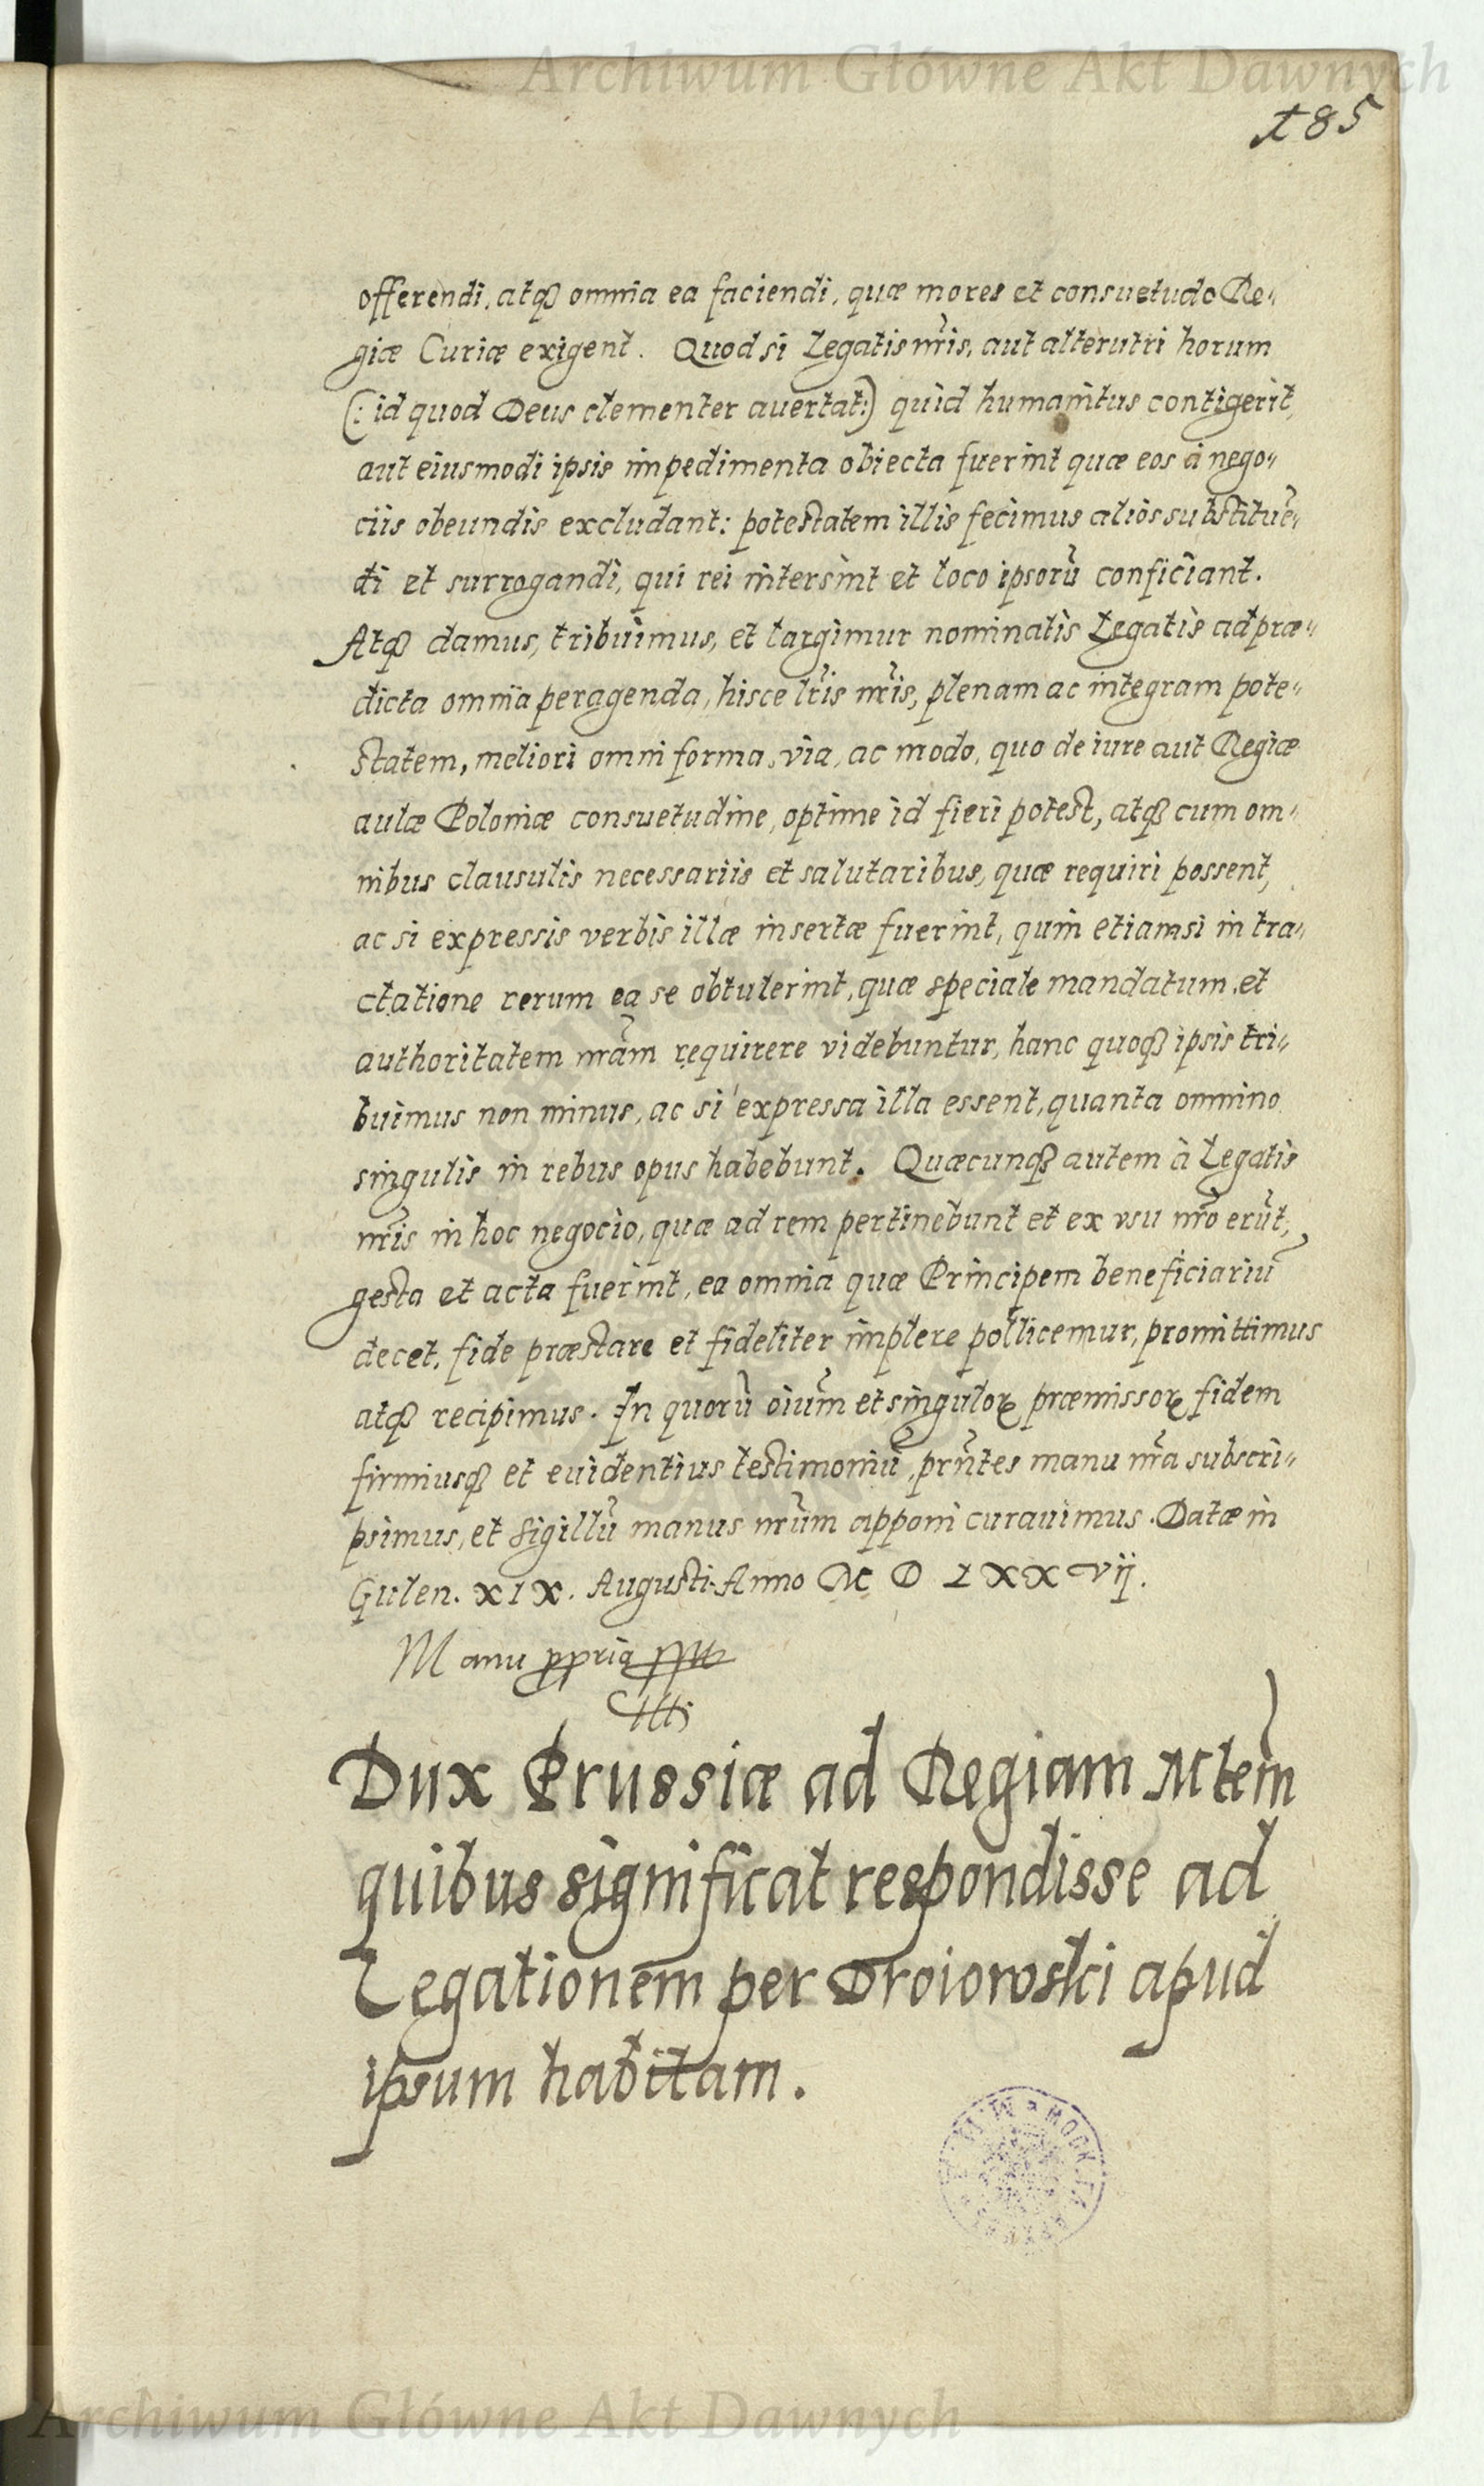 Archiwum Główne Akt Dawnych
185
offerendi, atq₃ omnia ea faciendi, quæ mores et consuetudo Re„
giæ Curiæ exigent. Quod si Legatis nr̃is, aut alterutri horum
(: id quod Deus clementer auertat:) quid humanitus contigerit,
aut eiusmodi ipsis impedimenta obiecta fuerint quæ eos à nego„
ciis obeundis excludant: potestatem illis fecimus alios substituẽ„
di et surrogandi, qui rei intersint et loco ipsorũ conficiant.
Atq₃ damus, tribuimus, et largimur nominatis Legatis ad præ„
dicta omnia peragenda, hisce lr̃is nr̃is, plenam ac integram pote„
statem, meliori omni forma, via, ac modo, quo de iure aut Regiæ
aulæ Poloniæ consuetudine, optime id fieri potest, atq₃ cum om„
nibus clausulis necessariis et salutaribus, quæ requiri possent,
ac si expressis verbis illæ insertæ fuerint, quin etiamsi in tra„
ctatione rerum ea se obtulerint, quæ speciale mandatum, et
authoritatem nr̃am requirere videbuntur, hanc quoq₃ ipsis tri„
buimus non minus, ac si expressa illa essent, quanta omnino
singulis in rebus opus habebunt. Quæcunq₃ autem à Legatis
nr̃is in hoc negocio, quæ ad rem pertinebunt et ex vsu nr̃o erũt,
gesta et acta fuerint, ea omnia quæ Principem beneficiariũ
decet, fide præstare et fideliter implere pollicemur, promittimus
atq₃ recipimus. In quorũ oiũm et singuloꝝ præmissoꝝ fidem
firmiusq₃ et euidentius testimoniũ, prñtes manu nr̃a subscri„
psimus, et sigillũ manus nr̃um apponi curauimus. Datæ in
Gulen. XIX. Augusti Anno M D LXXVij.
Manu ppria
Dux Prussiæ ad Regiam Mtem̃
quibus significat respondisse ad
Legationem per Droiowski apud
ipsum habitam.
Archiwum Główne Akt Dawnych